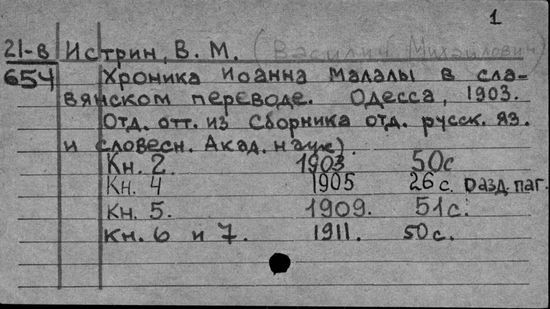 1
21-в Истрин, В. М. (Василий Михайлович)
654 Хроника Иоанна Малалы в сла-
вянском переводе. Одесса, 1903.
Отд. отт. из Сборника отд. русск. яз.
и словесн. Акад. наук).
Кн. 2. 1903 50с
Кн. 4 1905 26 с. разд. паг.
Кн. 5. 1909. 51с.
Кн. 6 и 7. 1911. 50с.